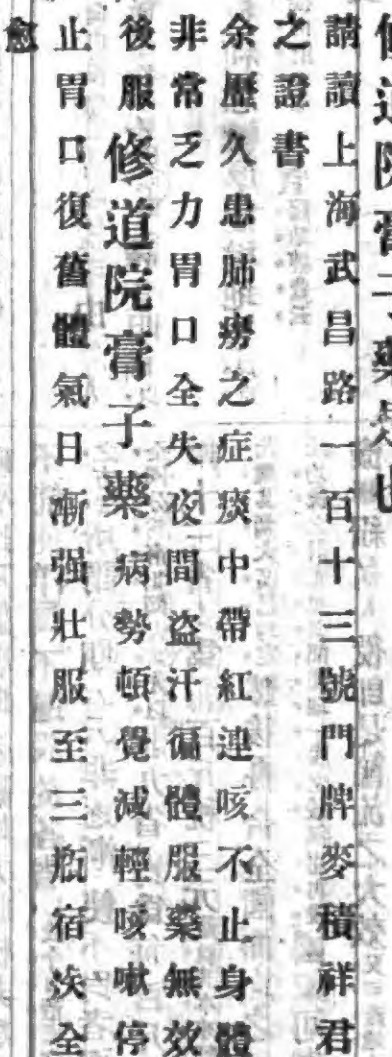 修道院膏子藥是也
請讀上海武昌路一百十三號門牌麥積祥君
之證書
余歷久患肺癆之症痰中帶紅連咳不止身體
非常乏力胃口全失夜間盜汗徧體服藥無效
後服修道院膏子藥病勢頓覺減輕咳嗽停
止胃口復舊體氣日漸强壯服至三瓶宿疾全
愈